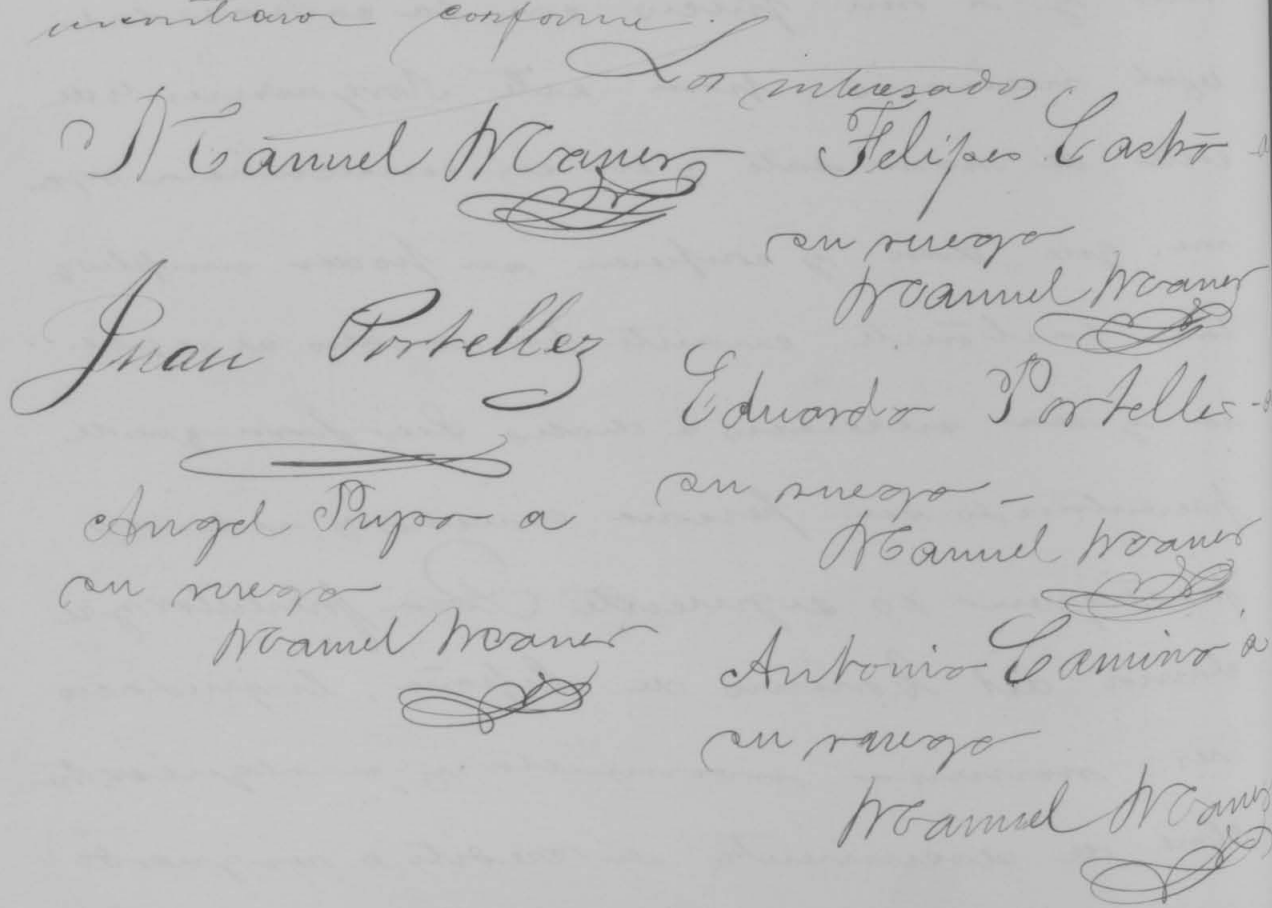 encontraron conforme.
Los interesados
Manuel Maner
Felipes Castro - a
su ruego
Manuel Maner
Juan Portellez
Eduardo Portelles - a
su ruego -
Manuel Maner
Angel Pupo a
su ruego
Manuel Maner
Antonio Camino a
su ruego
Manuel Maner